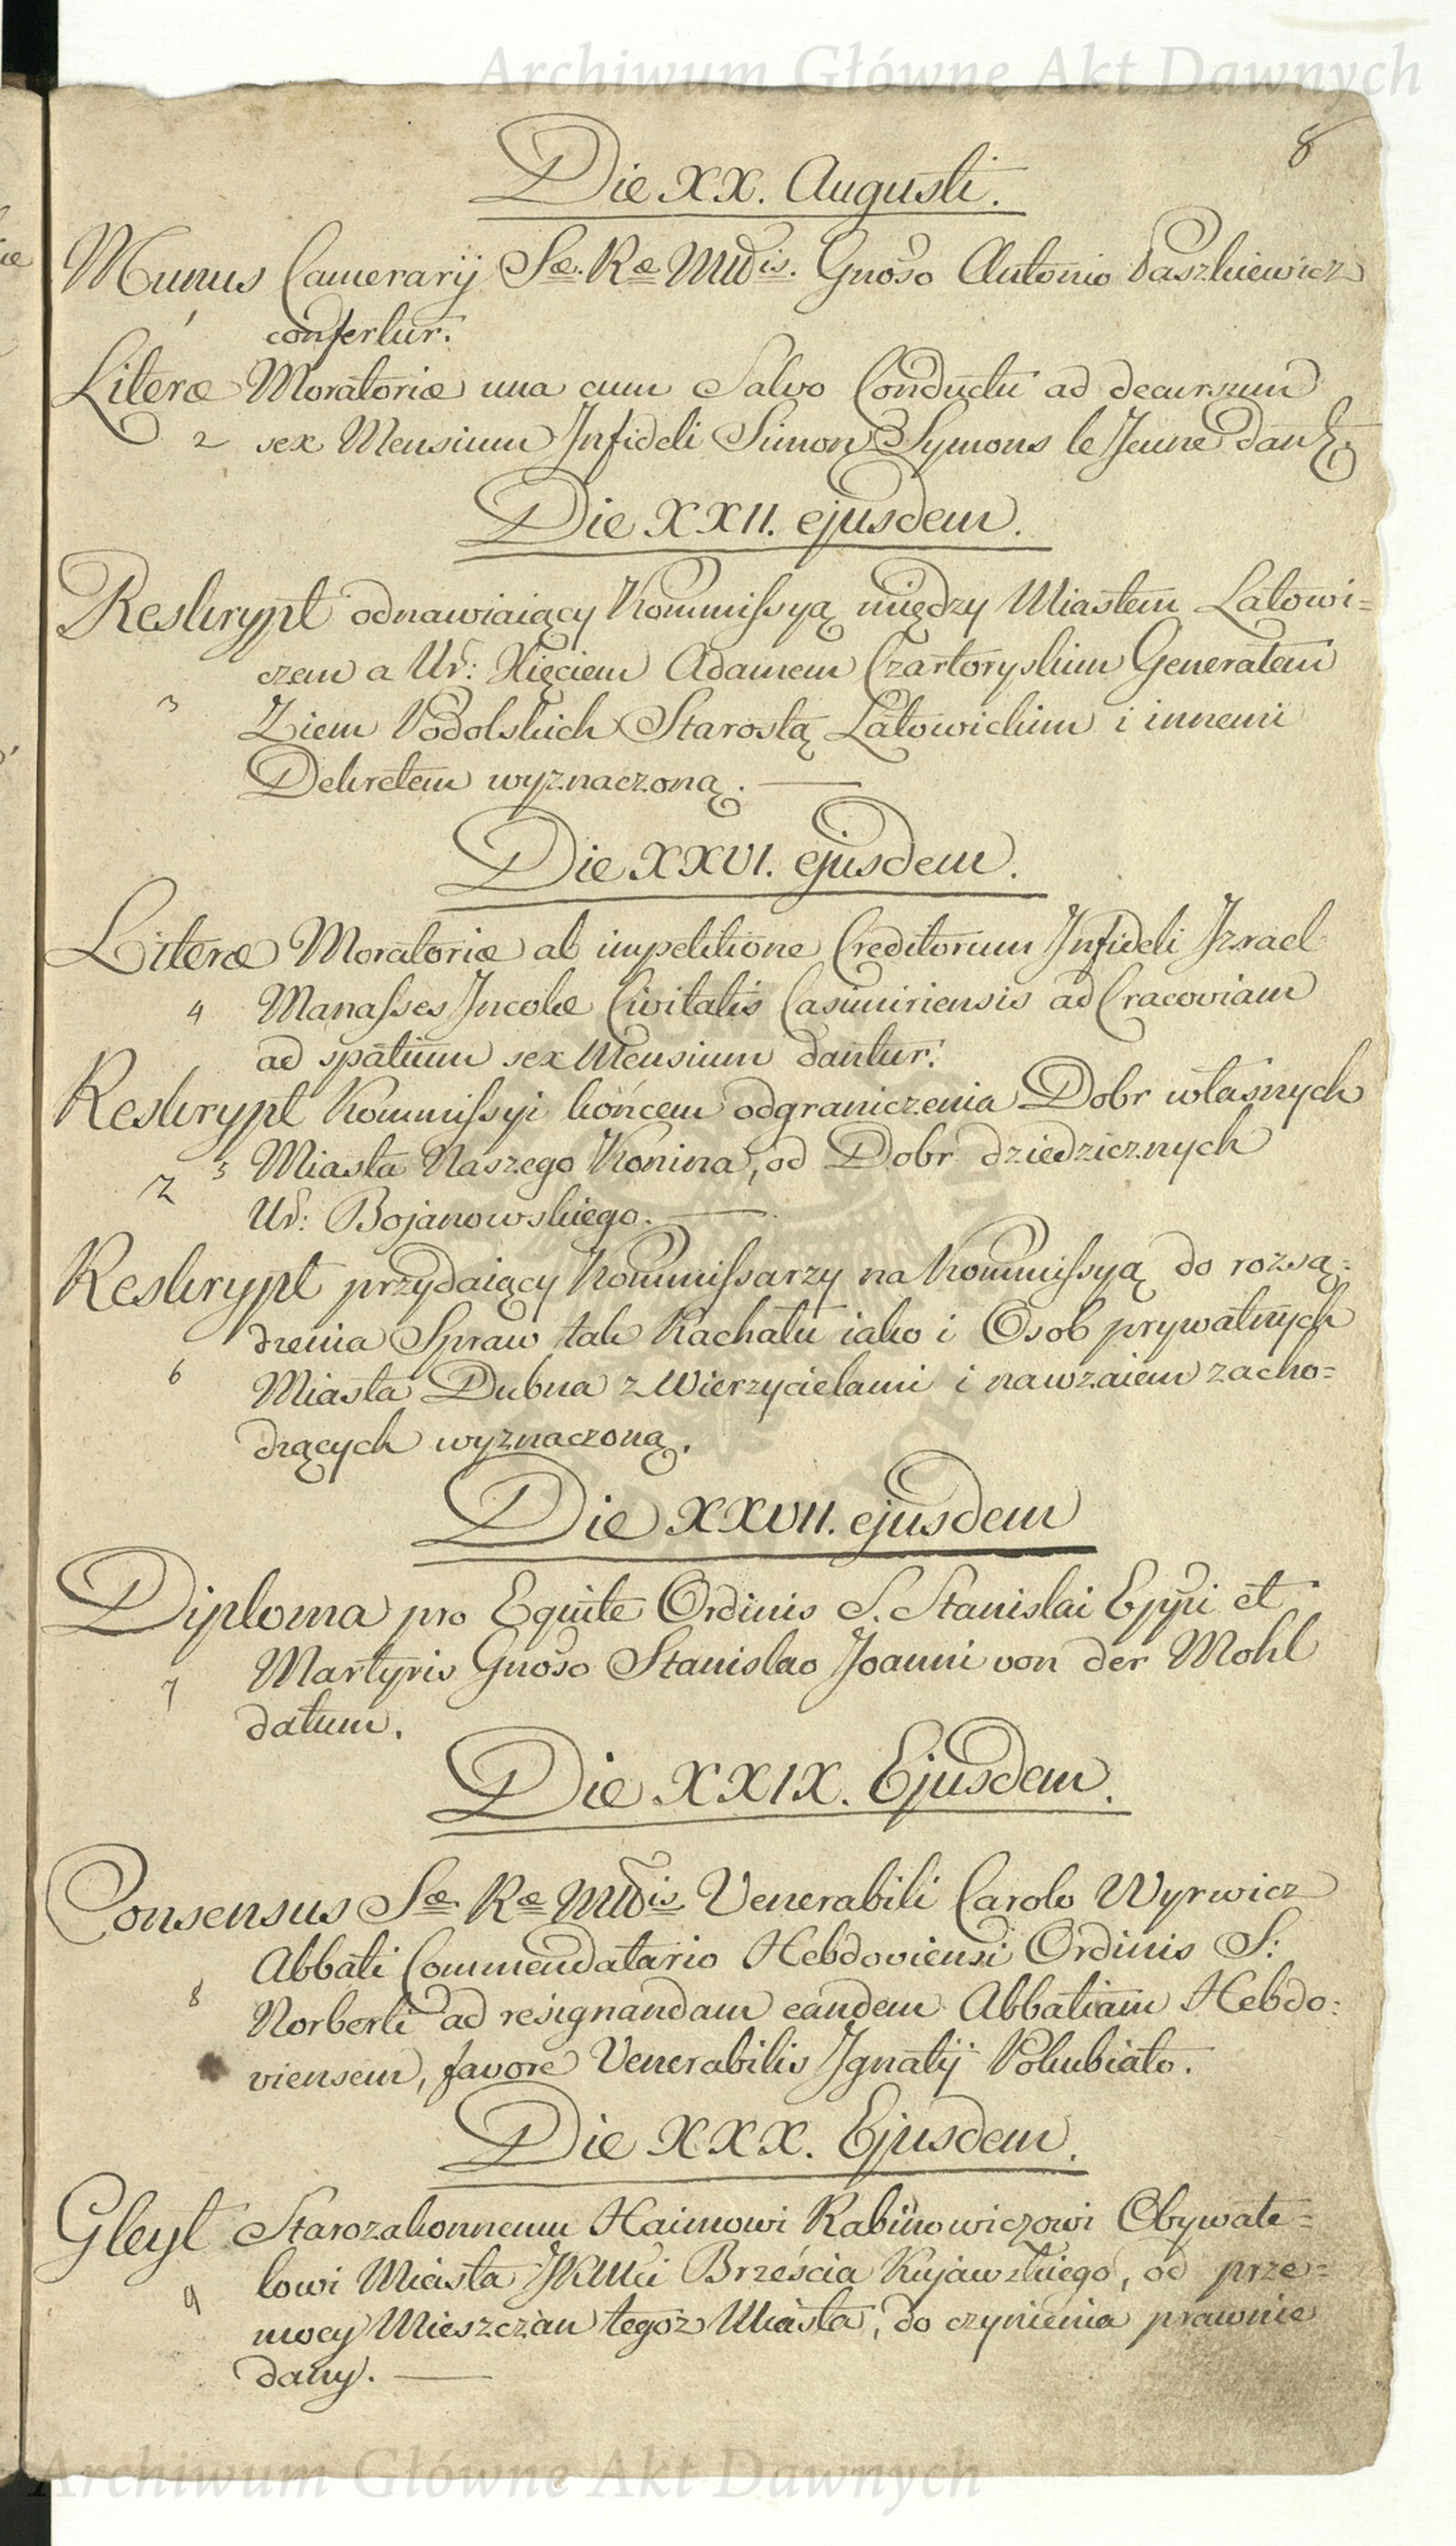 Archiwum Główne Akt Dawnych
8
Die XX. Augusti.
Munus Camerarij Sæ. Ræ Mtis. Gnoso Antonio Paszkiewicz
1 confertur.
Literæ Moratoriæ una cum Salvo Conductu ad decursum
2 sex Mensium Infideli Simon Symons le Jeune dant.
Die XXII. ejusdem.
Reskrypt odnawiaiący Kommissyą między Miastem Latowi=
czem a Ur: Xięciem Adamem Czartoryskim Generałem
3 Ziem Podolskich Starostą Latowickim i innemi
Dekretem wyznaczoną.
Die XXVI. ejusdem.
Literæ Moratoriæ ab impetitione Creditorum Infideli Izrael
4 Manasses Incolæ Civitatis Casimiriensis ad Cracoviam
ad spatium sex Mensium dantur.
Reskrypt Kommissyi końcem odgraniczenia Dobr własnych
5 Miasta Naszego Konina, od Dobr dziedzicznych
Ur: Bojanowskiego.
Reskrypt przydaiący Kommissarzy na Kommissyą do rozsą=
dzenia Spraw tak Kachału iako i Osob prywatnych
6 Miasta Dubna z Wierzycielami i nawzaiem zacho=
dzących wyznaczoną.
Die XXVII. ejusdem
Diploma pro Equite Ordinis S. Stanislai Eppi et
7 Martyris Gnoso Stanislao Joanni von der Mohl
datum.
Die XXIX. Ejusdem.
Consensus Sæ Ræ Mtis Venerabili Carolo Wyrwicz
Abbati Commendatario Hebdoviensi Ordinis S:
8 Norberti ad resignandam eandem Abbatiam Hebdo=
viensem, favore Venerabilis Ignatij Połubiało.
Die XXX. Ejusdem.
Gleyt Starozakonnemu Haimowi Rabinowiczowi Obywate=
9 lowi Miasta JKMci Brześcia Kujawskiego, od prze=
mocy Mieszczan tegoż Miasta, do czynienia prawnie
dany.
Archiwum Główne Akt Dawnych